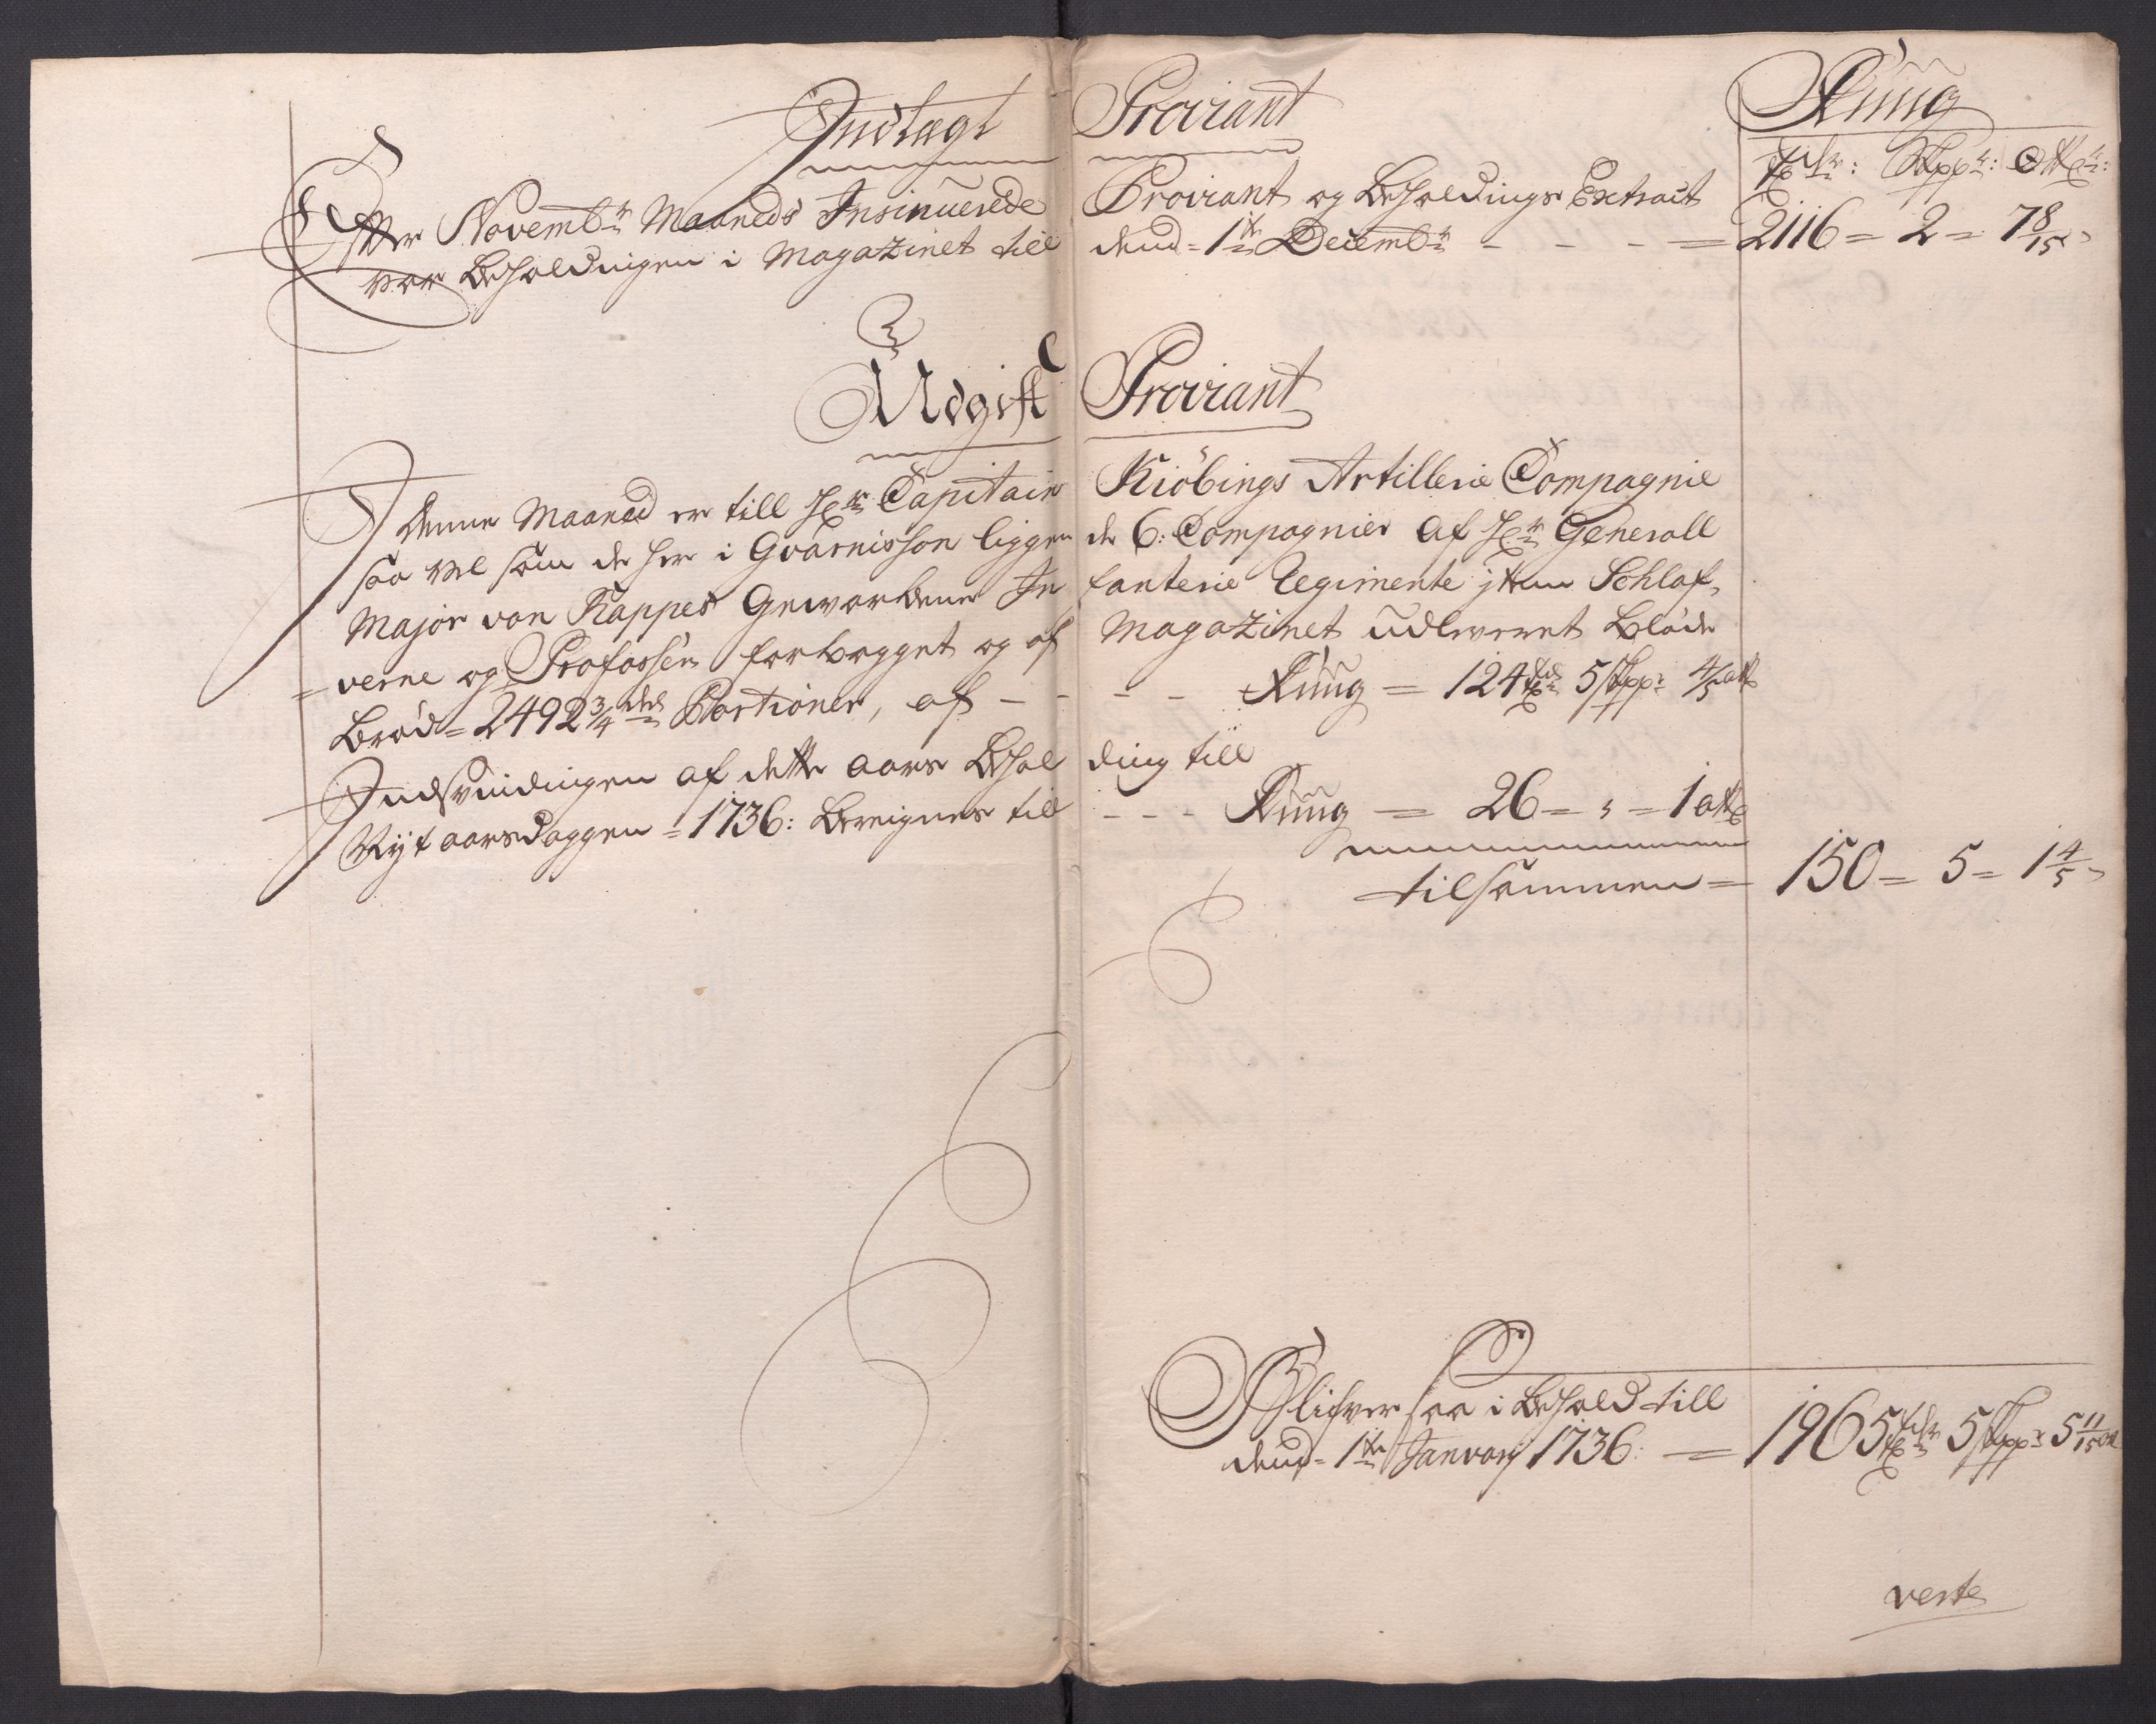 Indtagt Proviant
Rüug
tdr: Skppr: Ottr:
Effter Novembr Maaneds Insinuerede Proviant og Beholdings Extract
var Beholdningen i Magazinet till dend 1te Decembr - - - = 2116 = 2 = 7 8/15
Udgift Proviant
I denne Maaned er till Hr Capitain Kiöbings Artillerie Compagnie
saa vel som de her i Gvarnisson liggende 6: Compagnier af Hr Generall
Major von Kappes Gevorbene Infanterie Regimente jtem Schlaf-
= verne og Profossen forbagget og af Magazinet udleveret bløde
Brød = 2492 3/4 deel Portioner, af - - - - Rüug = 124 tdr 5 Skppr 4/5 ott
Indsvindingen af dette aars Beholding till
Nytaarsdaggen = 1736: Bereignes till - - - Rüug = 26 = „ = 1 ott
tilsammen = 150 = 5 = 1 4/5
Blifver saa i Behold till
dend = 1te Januarij 1736: = 1965 tdr 5 Skppr 5 11/15 ott
verte